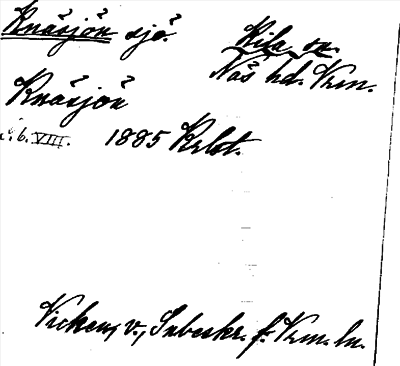 Knäsjön sjö. Kila sn.
Näs hd. Vrm.
Knäsjön
i. 6. VIII. 1885 Krbt.
Vicken, v., Inbeskr. f. Vrm. ln.